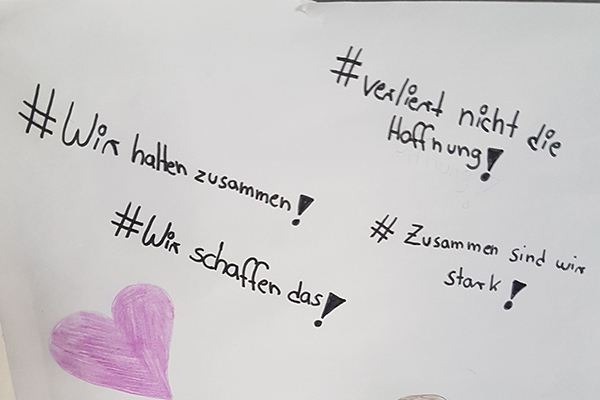 #Wir halten zusammen!
#verliert nicht die
Hoffnung!
#Wir schaffen das!
# Zusammen sind wir
stark!